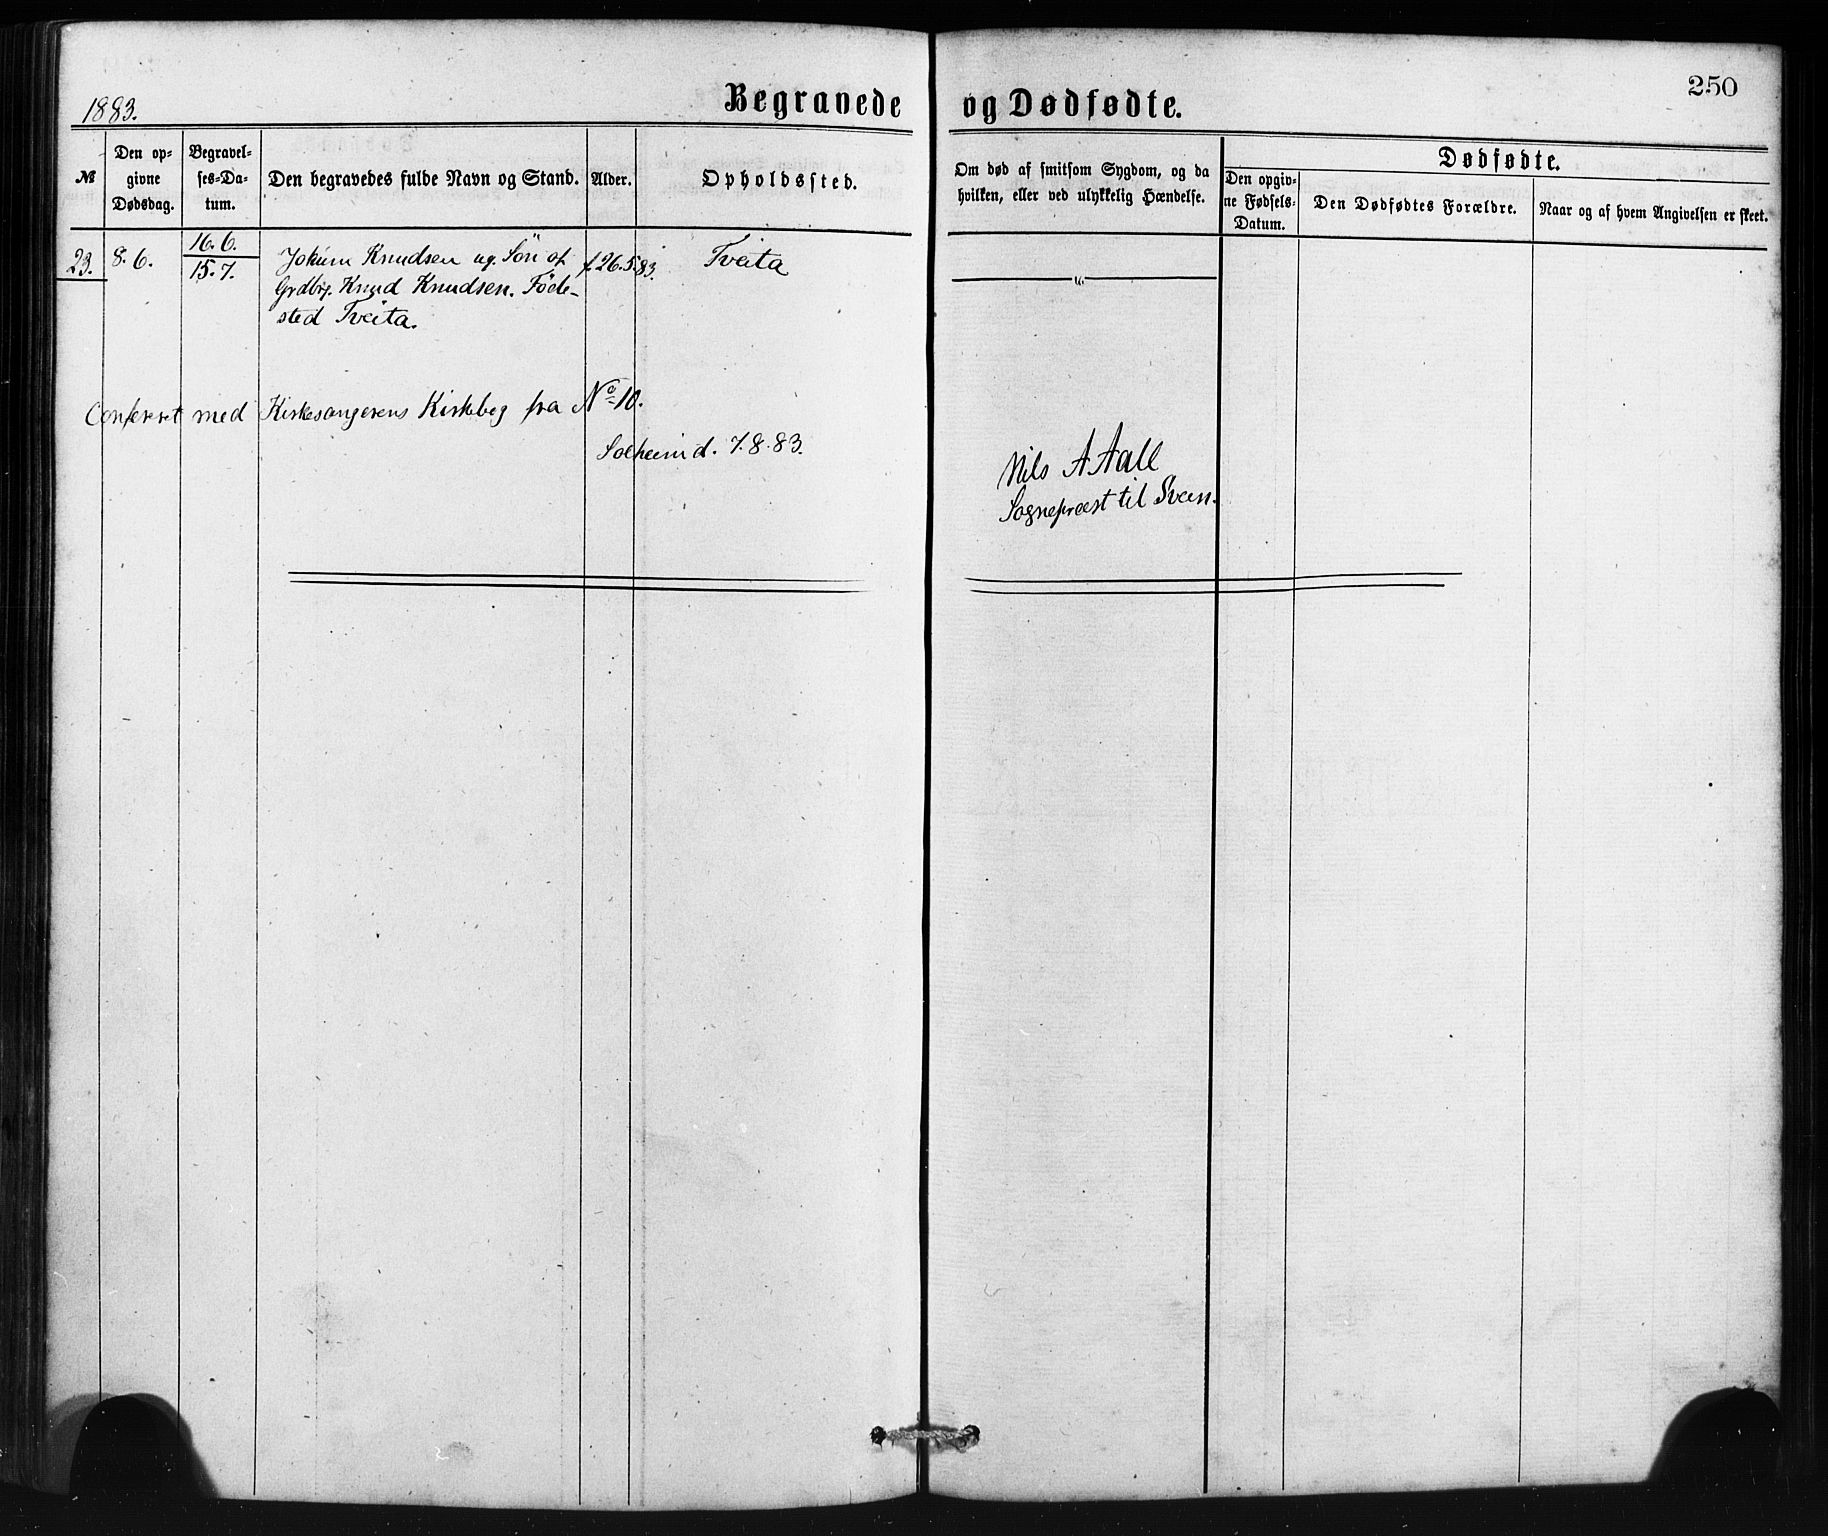 1883.
Begravede og Dødfødte.
250
№
Den op-
givne
Dødsdag.
Begravel-
ses-Da-
tum.
Den begravedes fulde Navn og Stand.
Alder.
Opholdssted.
Om død af smitsom Sygdom, og da
hvilken, eller ved ulykkelig Hændelse.
Dødfødte.
Den opgiv-
ne Fødsels-
Datum.
Den Dødfødtes Forældre.
Naar og af hvem Angivelsen er skeet.
23.
8.6.
16.6.
15.7.
Jokum Knudsen ug. Søn af
Grdbrg. Knud Knudsen. Føde-
sted Tveita.
f. 26.5.83.
Tveita
Confereret med Kirkesangerens Kirkebog fra No 10.
Solheim d. 7.8.83.
Nils A Aall
Sognepræst til Sveen.